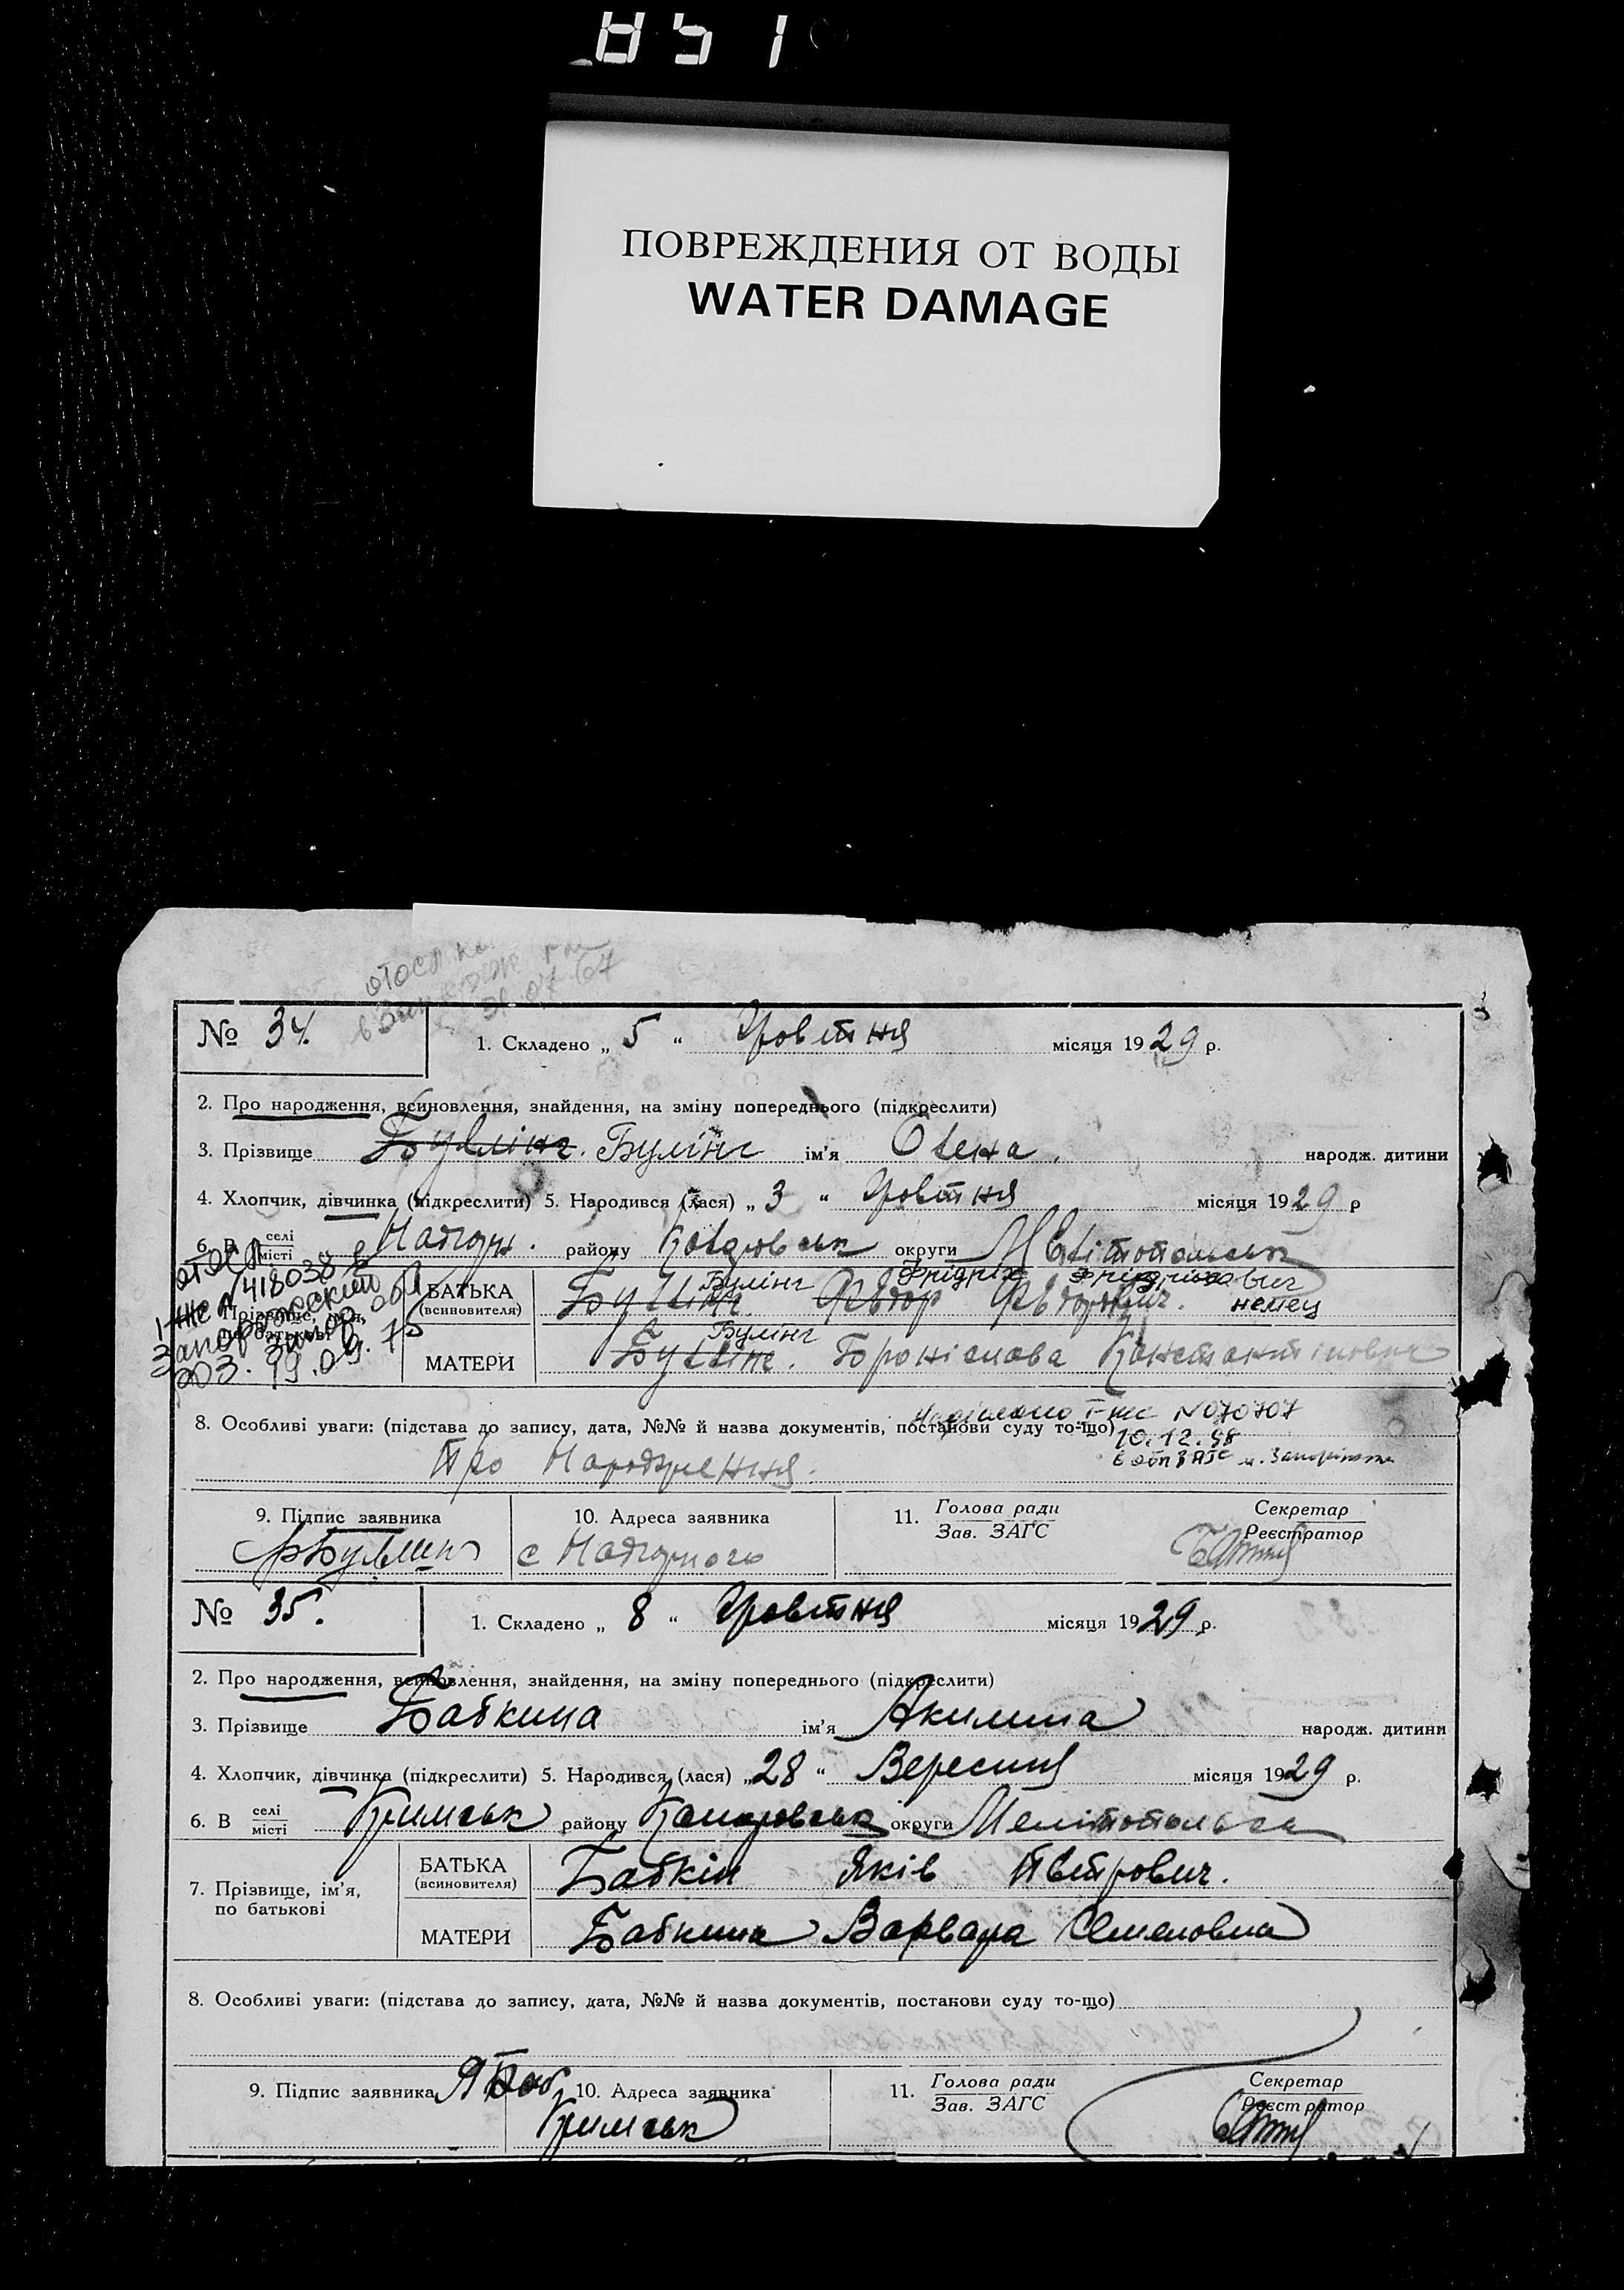 851
ПОВРЕЖДЕНИЯ ОТ ВОДЫ
WATER DAMAGE
31.07.67
№ 34.
1. Складено „ 5 “ Жовтня місяця 1929 р.
2. Про народження, всиновлення, знайдення, на зміну попереднього (підкреслити)
3. Прізвище Булінг ім'я Олена народж. дитини
4. Хлопчик, дівчинка (підкреслити) 5. Народився (лася) „ 3 “ Жовтня місяця 1929 р
6. В селі місті району округи Мелітопольськ
№ 418038
Запорожский
Булінг Фрідріх Фрідріхович
БАТЬКА (всиновителя) Федор Федорович. немец
Булінг
МАТЕРИ Броніслава Константиновна
8. Особливі уваги: (підстава до запису, дата, №№ й назва документів, постанови суду то-що)
N 070707
10.12.98
м. Запоріжжя
Про Народження.
9. Підпис заявника 10. Адреса заявника 11. Голова ради Зав. ЗАГС Секретар Реєстратор
№ 35.
1. Складено „ 8 “ Жовтня місяця 1929 р.
2. Про народження, всиновлення, знайдення, на зміну попереднього (підкреслити)
3. Прізвище Бабкина ім'я Акилина народж. дитини
4. Хлопчик, дівчинка (підкреслити) 5. Народився (лася) „ 28 “ Вересня місяця 1929 р.
6. В селі місті Кримськ району округи Мелітопольськ
7. Прізвище, ім'я, по батькові
БАТЬКА (всиновителя) Бабкін Яків Петрович.
МАТЕРИ Бабкина Варвара Семеновна
8. Особливі уваги: (підстава до запису, дата, №№ й назва документів, постанови суду то-що)
9. Підпис заявника Я Баб 10. Адреса заявника 11. Голова ради Зав. ЗАГС Секретар Реєстратор
Кримськ